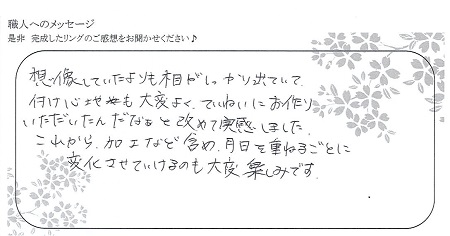 職人へのメッセージ
是非 完成したリングのご感想をお聞かせください♪
想像していたよりも相がしっかり出ていて、
付け心地も大変よく、ていねいにお作り
いただいたんだなぁと改めて実感しました。
これから、加工など含め、月日を重ねるごとに
変化させていけるのも大変楽しみです。